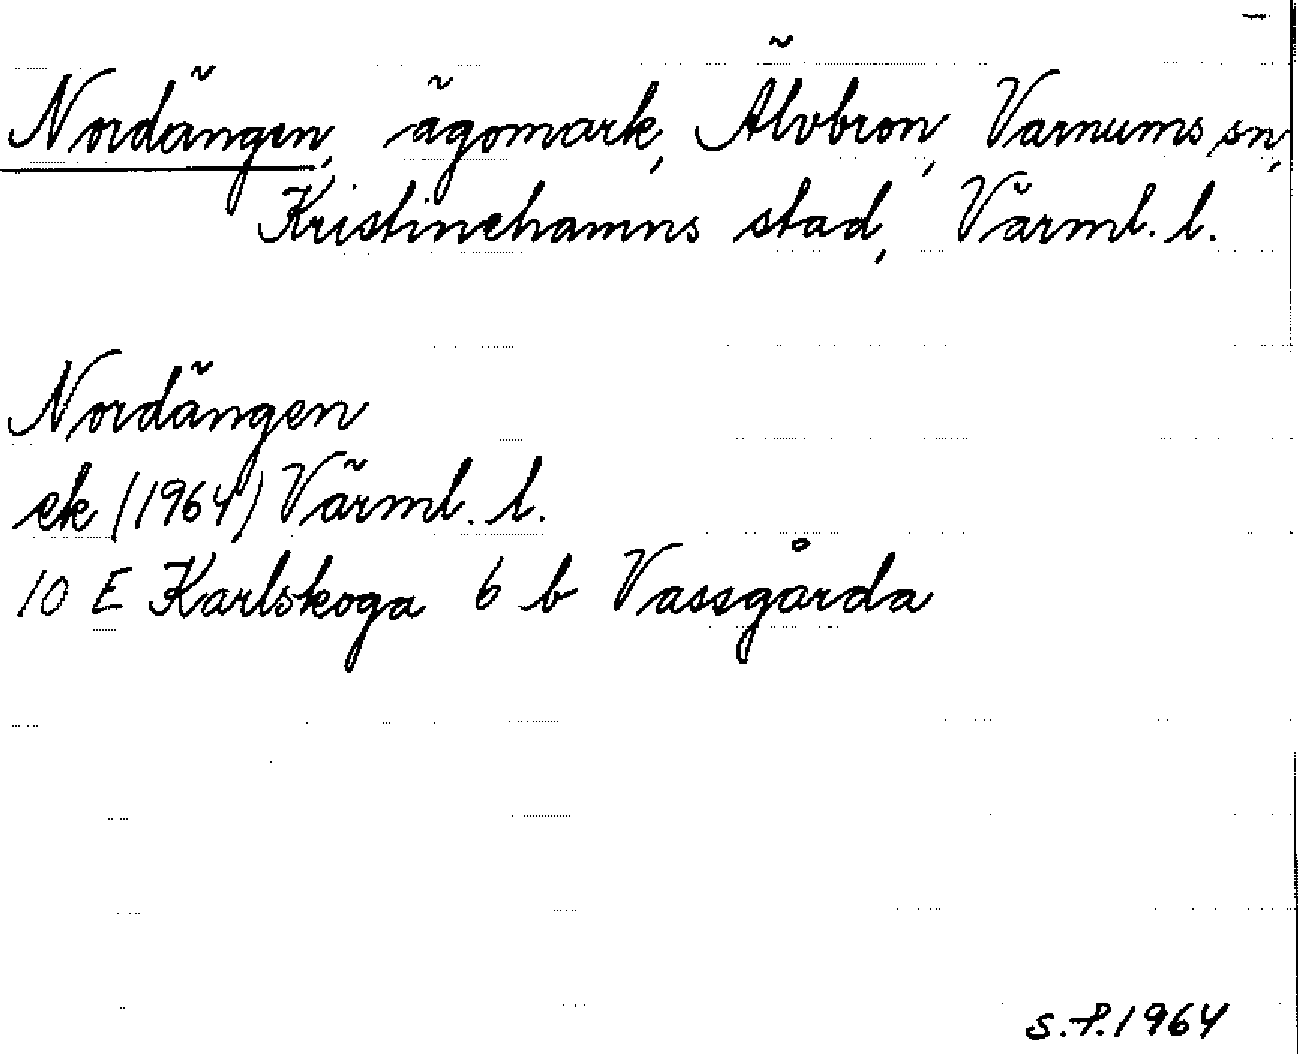 Nordängen, ägomark, Älvbron, Varnums sn,
Kristinehamns stad, Värml. l.
Nordängen
ek (1964) Värml. l.
10 E Karlskoga 6 b Vassgårda
s.f.1964